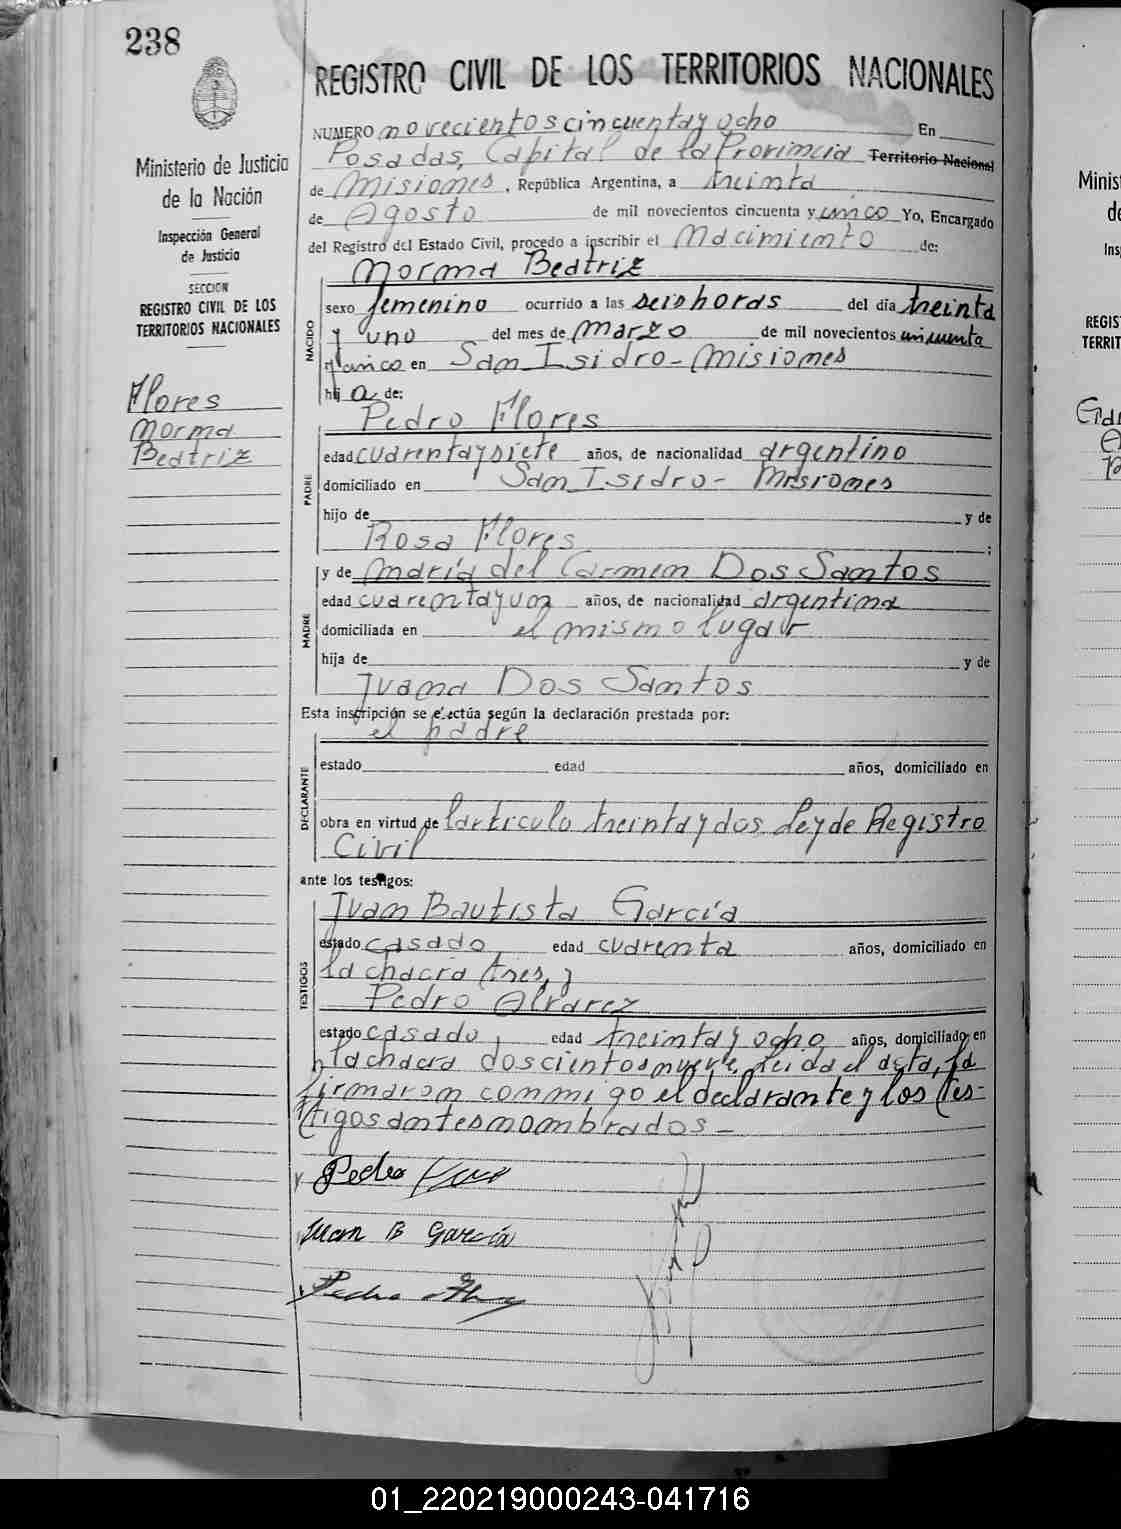 238
REGISTRO CIVIL DE LOS TERRITORIOS NACIONALES
Ministerio de Justicia
de la Nación
Inspección General
de Justicia
SECCION
REGISTRO CIVIL DE LOS
TERRITORIOS NACIONALES
Flores
Norma
Beatriz
NUMERO novecientos cincuenta y ocho En
Posadas, Capital de la Provincia Territorio Nacional
de Misiones, República Argentina, a treinta
de Agosto de mil novecientos cincuenta y cinco Yo, Encargado
del Registro del Estado Civil, procedo a inscribir el Nacimiento de:
Norma Beatriz
NACIDO
sexo femenino ocurrido a las seis horas del día treinta
y uno del mes de Marzo de mil novecientos cincuenta
y cinco en San Isidro - Misiones
hija de:
Pedro Flores
PADRE
edad cuarenta y siete años, de nacionalidad argentino
domiciliado en San Isidro - Misiones
hijo de y de
Rosa Flores ;
y de María del Carmen Dos Santos
MADRE
edad cuarenta y un años, de nacionalidad argentina
domiciliada en el mismo lugar
hija de y de
Juana Dos Santos
Esta inscripción se efectúa según la declaración prestada por:
el padre
DECLARANTE
estado edad años, domiciliado en
obra en virtud de l artículo treinta y dos Ley de Registro
Civil
ante los testigos:
Juan Bautista García
TESTIGOS
estado casado edad cuarenta años, domiciliado en
la chacra tres, y
Pedro Alvarez
estado casado, edad treinta y ocho años, domiciliado en
la chacra doscientos nueve, Leida el acta, la
firmaron conmigo el declarante y los tes-
tigos antes nombrados -
Pedro Flores
Juan B García
Pedro
Minis
de
Ins
REGIS
TERRIT
01_220219000243-041716